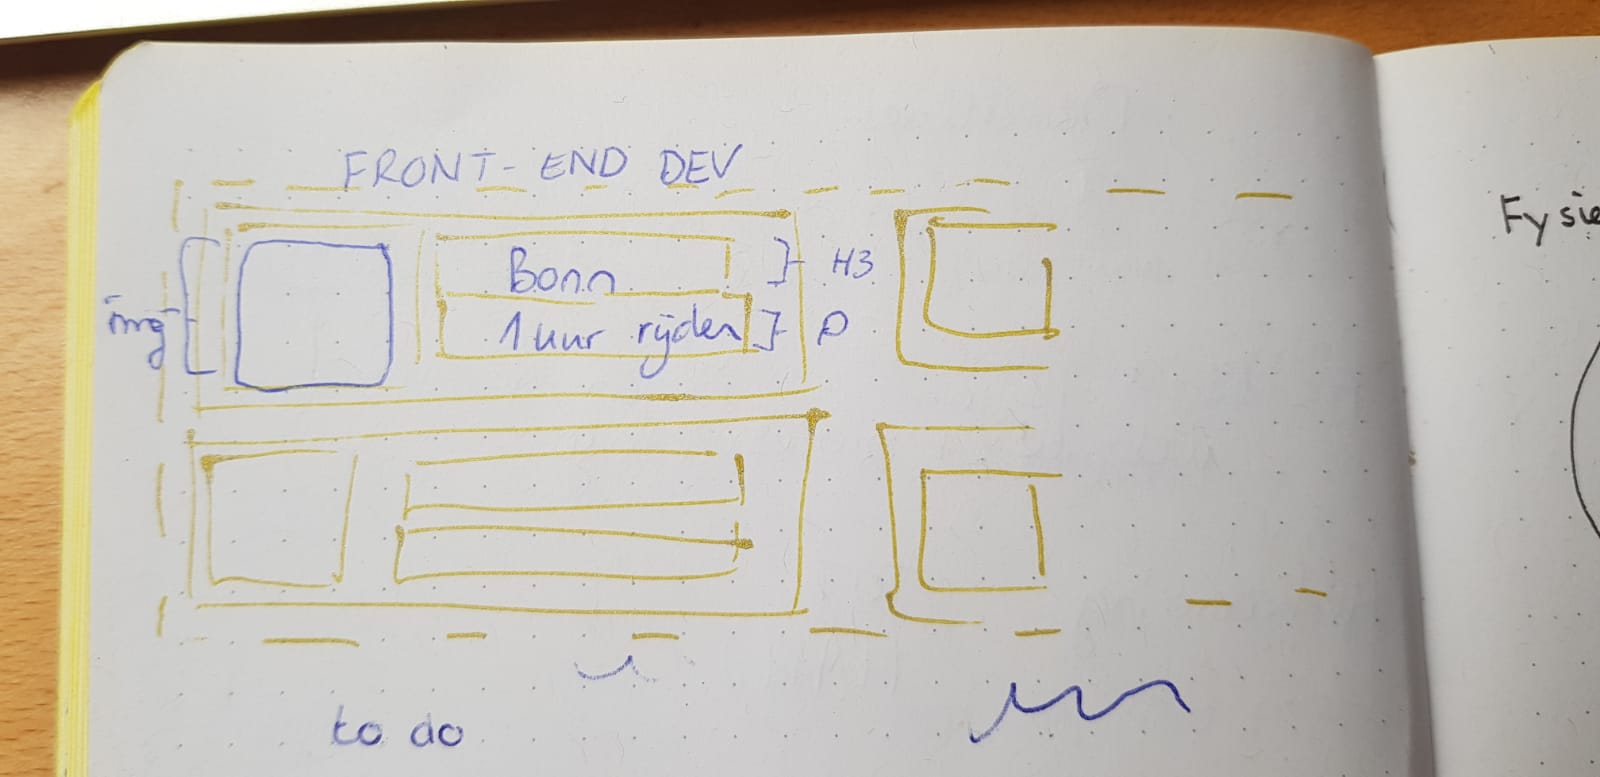 FRONT-END DEV
img
Bonn
H3
1 uur rijden
P
to do
Fysie